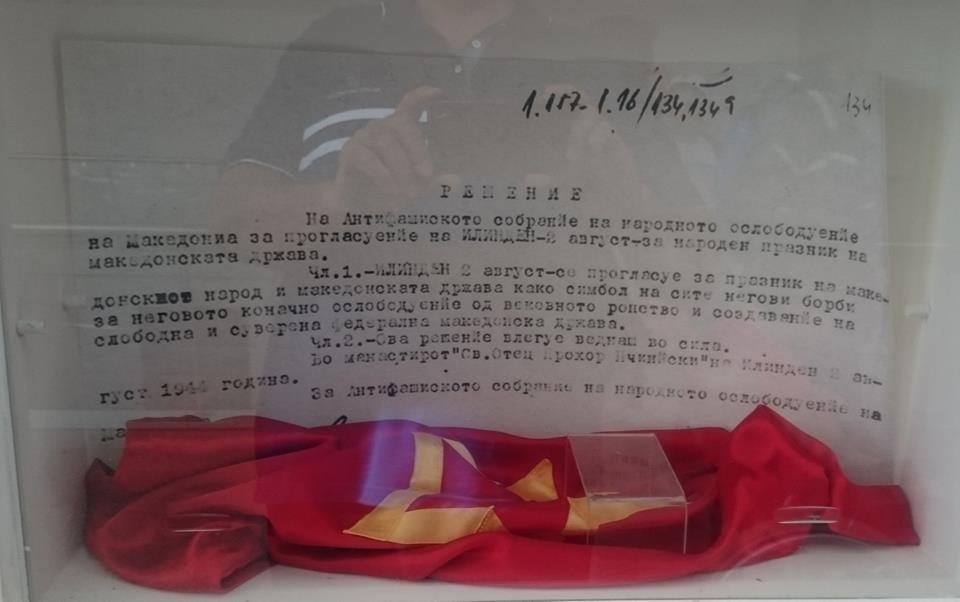 1.187-1.16/134,1349
134
РЕШЕНИЕ
На Антифашиското собрание на народното ослободуение
на Македониа за прогласуение на ИЛИНДЕН-2 август-за народен празник на
македонската држава.
Чл.1.-ИЛИНДЕН 2 август-се прогласуе за празник на маке-
донскиот народ и македонската држава како симбол на сите негови борби
за неговото коначно ослободуение од вековното ропство и создавание на
слободна и суверена федерална македонска држава.
Чл.2.-Ова решение влегуе веднаш во сила.
Во манастирот"Св.Отец Прохор Пчкийски"на Илинден 2 ав-
густ 1944 година.
За Антифашиското собрание на народното ослободуение на
Ма